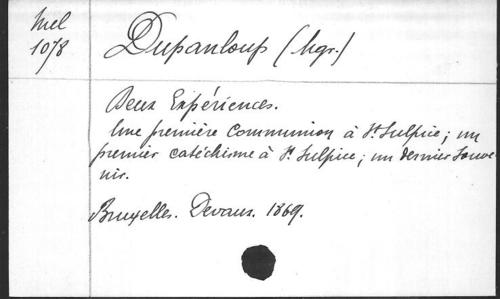 Mel
1078
Dupanloup (Mgr.)
Deux Expériences.
Une première Communion à St. Sulpice; un
premier catéchisme à St. Sulpice; un dernier souve
nir.
Bruxelles. Devaux. 1869.